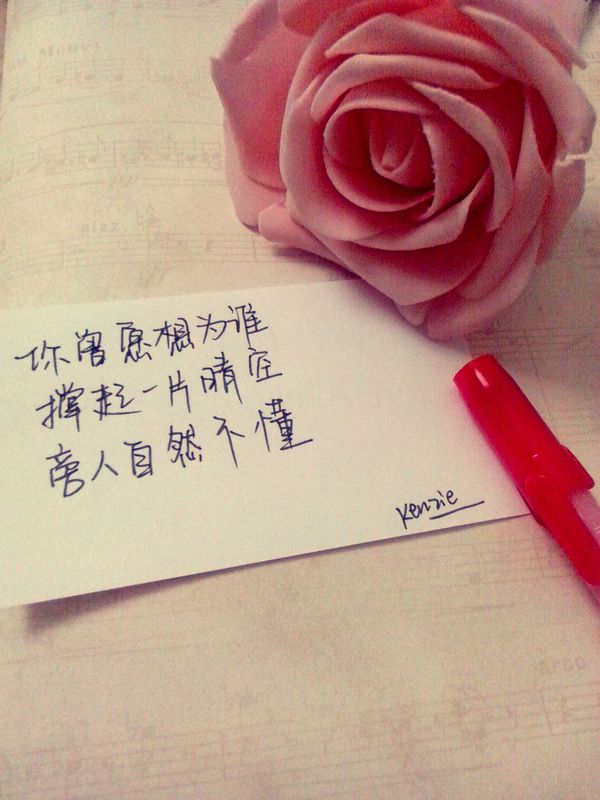 你曾愿想为谁
撑起一片晴空
旁人自然不懂
Kenzie
pizz.